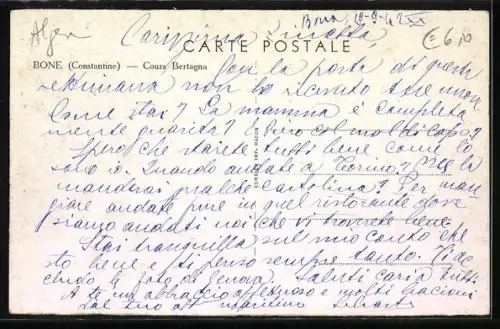 Alger
Bona, 19-9-42 XX
€ 6,10
Carissima
CARTE POSTALE
BONE (Constantine) — Cours Bertagna
Con la posta di questa
settimana non ho ricevuto tue nuove
Come stai? La mamma è completa
mente guarita?
Spero che starete tutti bene come lo
sono io. Quando andate a Torino? Me la
manderai qualche cartolina? Per man
giare andate pure in quel ristorante dove
siamo andati noi che vi troverete bene.
Stai tranquilla sul mio conto che
sto bene e ti penso sempre tanto. Ti ac
cludo la foto di Genova. Saluti cari a tutti
A te un abbraccio affettuoso e molti bacioni
dal tuo maritino